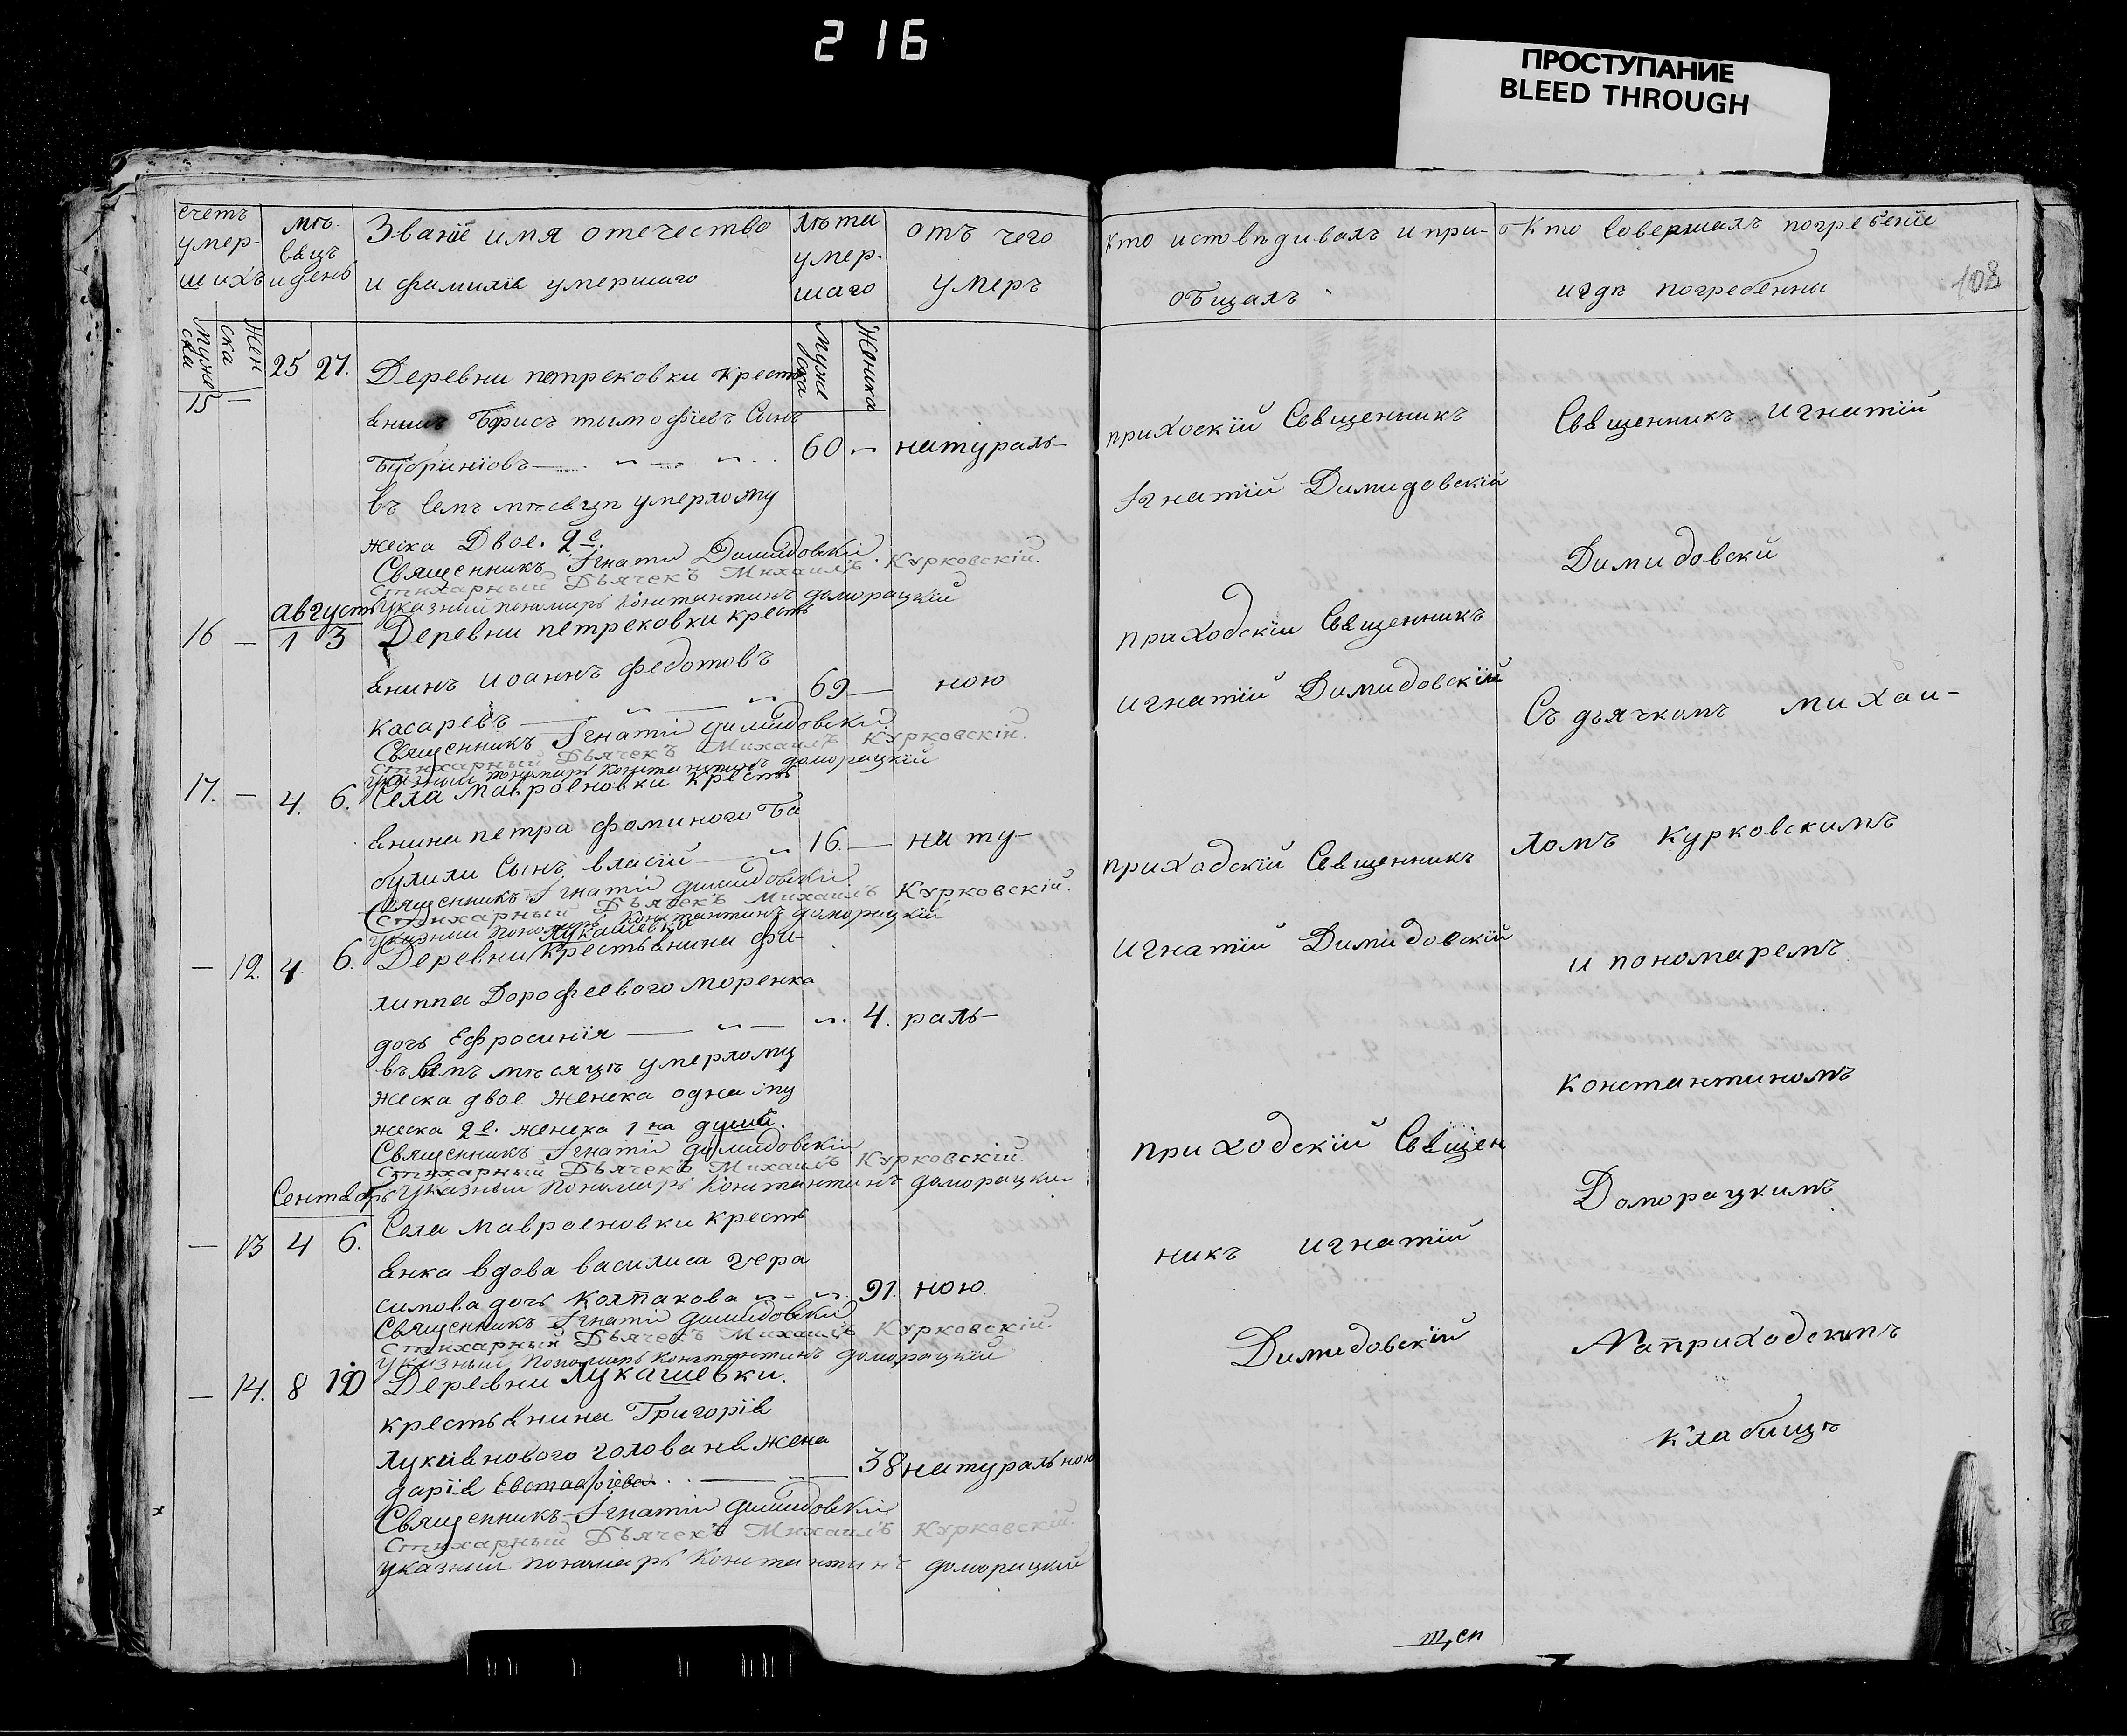 216
ПРОСТУПАНИЕ
BLEED THROUGH
счетъ
умер-
шихъ
мѣ.
сяцъ
и день
Званіе имя отечество
и фамилія умершаго
лѣта
умер-
шаго
отъ чего
умеръ
кто исповѣдивалъ и при-
общалъ
Кто совершалъ погребеніе
и гдѣ погребенны
108
Мужеска
Женска
Мужеска
Женска
15 — 25 27. Деревни петрековки кресть
янинъ Борисъ тымофіевъ Сынъ
60 — натураль-
въ семъ мѣсяцѣ умерло му
жеска Двое. 2е.
Священникъ Игнатій Димидовскій
Стихарный Дьячекъ Михаилъ Курковскій.
Указный пономарь Константинъ доморацкій
августъ
16 — 1 3 Деревни петрековки кресть
янинъ иоаннъ федотовъ
касаревъ — 69 — ною
Священникъ Игнатій димидовскій
Стихарный Дьячекъ Михаилъ Курковскій.
указный пономарь Константинъ доморацкій
17. — 4. 6. Села Мавроеновки кресть
янина петра фоминого Ба
булили Сынъ власій — 16. — нату-
Священникъ Игнатій димидовскій
Стихарный Дьячекъ Михаилъ Курковскій.
указный пономарь Константинъ доморацкій
лукашевки
— 12. 4. 6. Деревни крестьянина фи-
липпа Дорофеевого моренка
дочь Ефросинія — 4. раль-
въ семъ мѣсяцѣ умерло му
жеска двое женска одна му
жеска 2е. женска 1 на душа.
Священникъ Игнатій димидовскій
Стихарный Дьячекъ Михаилъ Курковскій.
Сентябрь Указный Пономарь Константинъ доморацкій
— 13 4 6. Села Мавроеновки кресть
янка вдова василиса гера
симова дочь Колпакова 91. ною.
Священникъ Игнатій димидовскій
Стихарный Дьячекъ Михаилъ Курковскій.
Указный Пономарь Константинъ доморацкій
— 14. 8 10 Деревни Лукашевки.
крестьянина Григорія
лукіянового голованя жена
дарія Евстафіева. 38 натуральною
Священникъ Игнатій димидовскій
Стихарный Дьячекъ Михаилъ Курковскій.
указный пономарь Константинъ доморацкій
прихоскій Священникъ
Игнатій Димидовскій
приходскій Священникъ
игнатій Димидовскій
приходскій Священникъ
игнатій Димидовскій
приходскій Священ
никъ игнатій
Димидовскій
Священникъ Игнатій
Димидовски
Съ дьячкомъ михаи-
ломъ Курковскимъ
и пономаремъ
Константиномъ
Доморацкимъ
На приходскомъ
клабищѣ